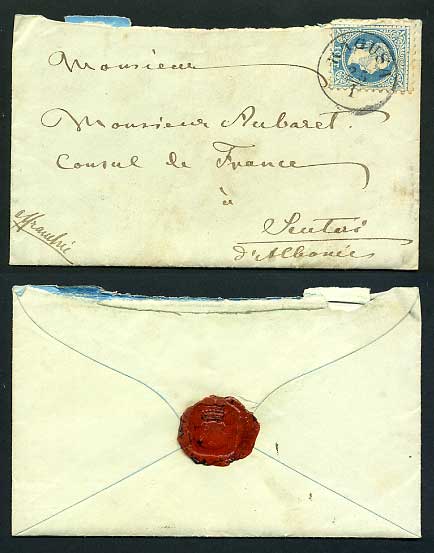 Monsieur
Monsieur Aubaret.
Consul de France
à
Scutari
d'Albanie
affranchie
RAGUSA